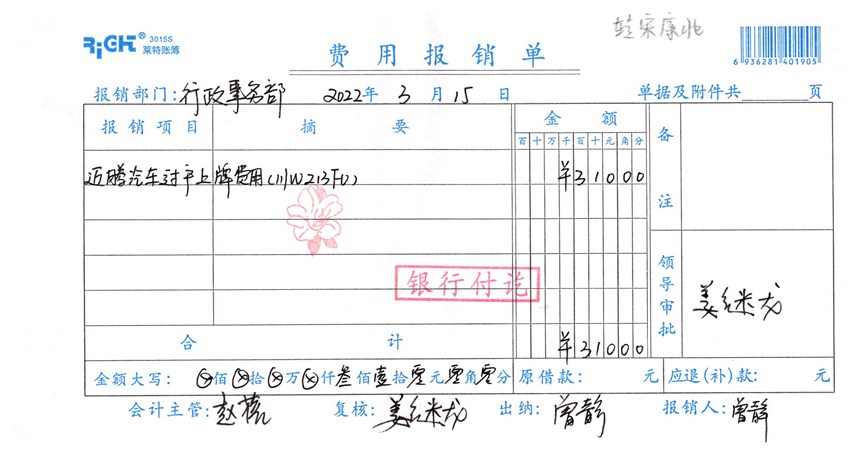 RiGHT® 3015S
莱特账簿
费用报销单
6 936281 401905
报销部门：行政事务部 2022年 3月 15日 单据及附件共 页
报销项目 摘要 金额 备注
百十万千百十元角分
迈腾汽车过户上牌费用（川W213FU） ¥31000
银行付讫
领导审批
合计 ¥31000
金额大写：ⓧ佰ⓧ拾ⓧ万ⓧ仟叁佰壹拾零元零角零分 原借款： 元 应退(补)款： 元
会计主管： 复核： 出纳：曾静 报销人：曾静